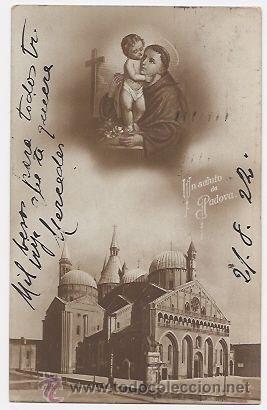 Un saluto
da
Padova.
Mil besos para todos tu
hija que te quiere
Mercedes
21. 8. 22.
todocoleccion.net